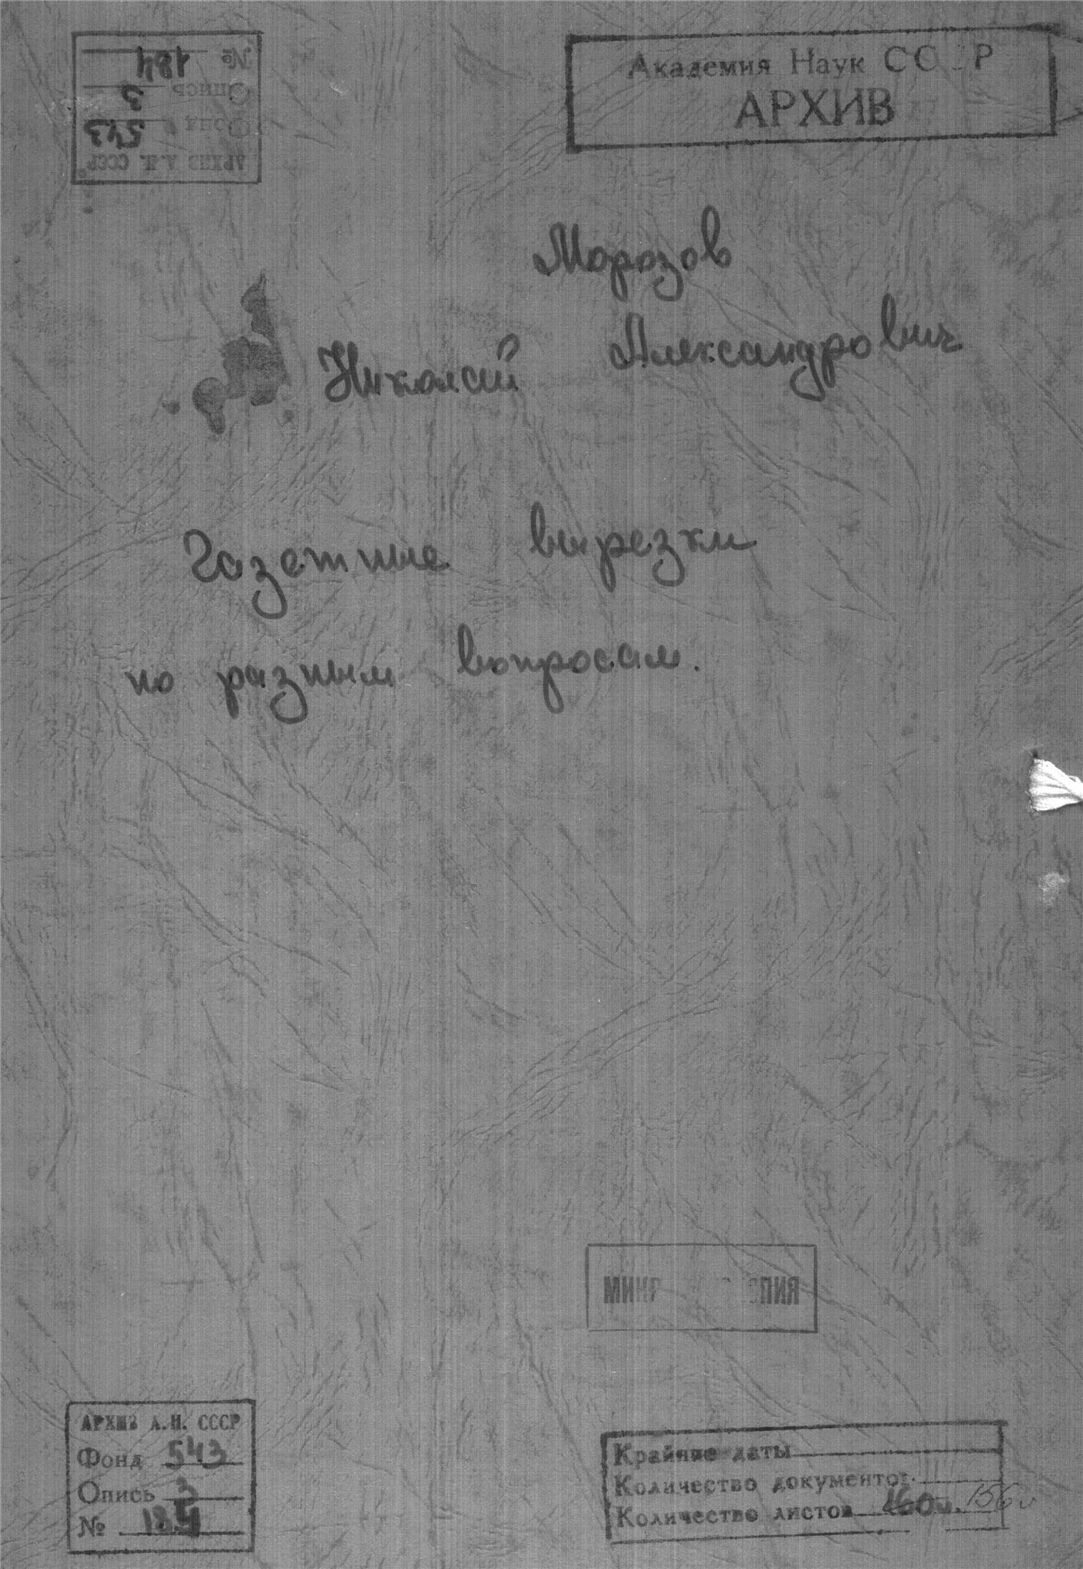 № 184
Опись 3
Фонд 543
АРХИВ А.Н. СССР
Академия Наук СССР
АРХИВ
Морозов
Николай Александрович
Газетные вырезки
по разным вопросам.
АРХИВ А.Н. СССР
Фонд 543
Опись 3
№ 184
Крайние даты
Количество документов
Количество листов 160л. 156л